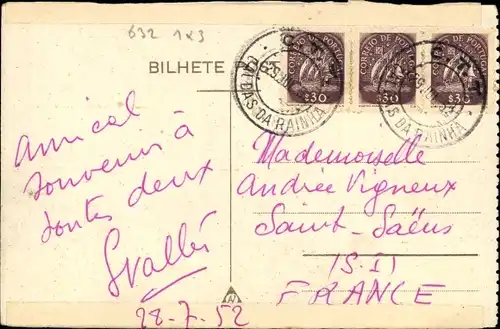 632 1x3
BILHETE
CORREIO DE PORTUGAL
CORREIO DE PORTUGAL
CORREIO DE PORTUGAL
$30
$30
$30
C.T.T.
CALDAS DA RAINHA
C.T.T.
CALDAS DA RAINHA
Amical
souvenir à
toutes deux
28-7-52
Mademoiselle
Andrée Vigneux
Saint-Saëns
(S.I)
FRANCE